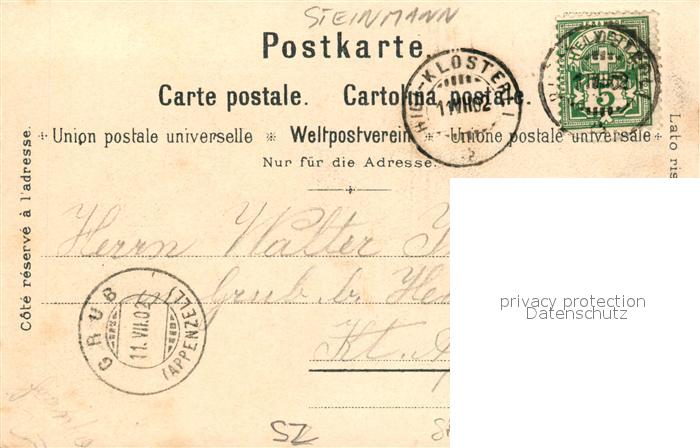 STEINMANN
Postkarte.
Carte postale. Cartolina postale.
Union postale universelle ※ Weltpostverein ※ Unione postale universale
Nur für die Adresse.
Côté réservé à l'adresse.
Lato ris
RIGI-KLÖSTERLI
11.VII.02
HELVETIA
5
Herrn Walter
in Grub b. Hei
Kt. A
GRUB
11.VII.02
(APPENZELL)
SZ
privacy protection
Datenschutz